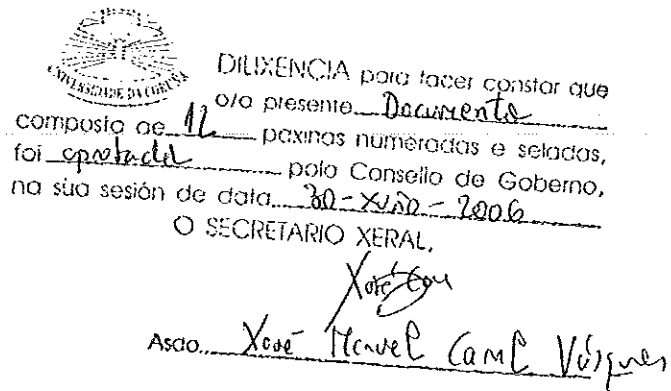 UNIVERSIDADE DA CORUÑA
DILIXENCIA para facer constar que
o/a presente Documento
composto de 12 paxinas numeradas e seladas,
foi aprobado polo Consello de Goberno,
na súa sesión de data 30-XUÑO-2006
O SECRETARIO XERAL,
Xosé
Asdo. Xosé Manuel Vázquez